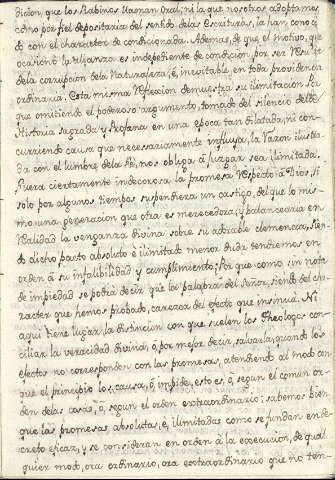 dicion, que los Rabinos llaman Oral; ni la que nosotros adoptamos
como por fiel depositaria del sentido de las Escrituras, la han conoci-
do con el charácter de condicionada. Ademas, de que el motivo, que
ocasionó la Alianza es independiente de condicion, por ser resulta
de la corrupcion de la Naturaleza; é, inevitable en toda providencia
ordinaria. Esta misma reflexion demuestra su ilimitacion. Por-
que omitiendo el poderoso argumento, tomado del silencio de la
Historia sagrada y Profana en una epoca tan dilatada; ni con-
curriendo causa que necesariamente influya, la razon ilustra-
da con el lumbre de la Fé, nos obliga á juzgar sea ilimitada.
Fuera ciertamente indecorosa la promesa respecto á Dios, si
solo por algunos tiempos suspendiera un castigo, del que lo mis-
mo una generacion que otra es merecedora; y balancearia en
realidad la venganza divina sobre su adorable clemencia, sien-
do dicho pacto absoluto é ilimitado menor duda tendremos en
orden á su infalibilidad y cumplimiento; Por que como sin nota
de impiedad se podrá decir que las palabras del Señor, siendo del cha-
racter que hemos probado, carezca del efecto que insinua. Ni
aqui tiene lugar la distincion con que suelen los Theologos con-
ciliar la veracidad divina, ó por mejor decir, salvarla, quando los
efectos no corresponden con las promesas, atendiendo al modo con
que el principio los causa, ó, impide, esto es, ó, segun el comun or-
den de las cosas, ó, segun el orden extraordinario: sabemos bien
que las promesas absolutas, é, ilimitadas como se fundan en de-
creto eficaz, y se consideran en orden á la execucion, de qual-
quier modo, ora ordinario, ora extraordinario que no ten-